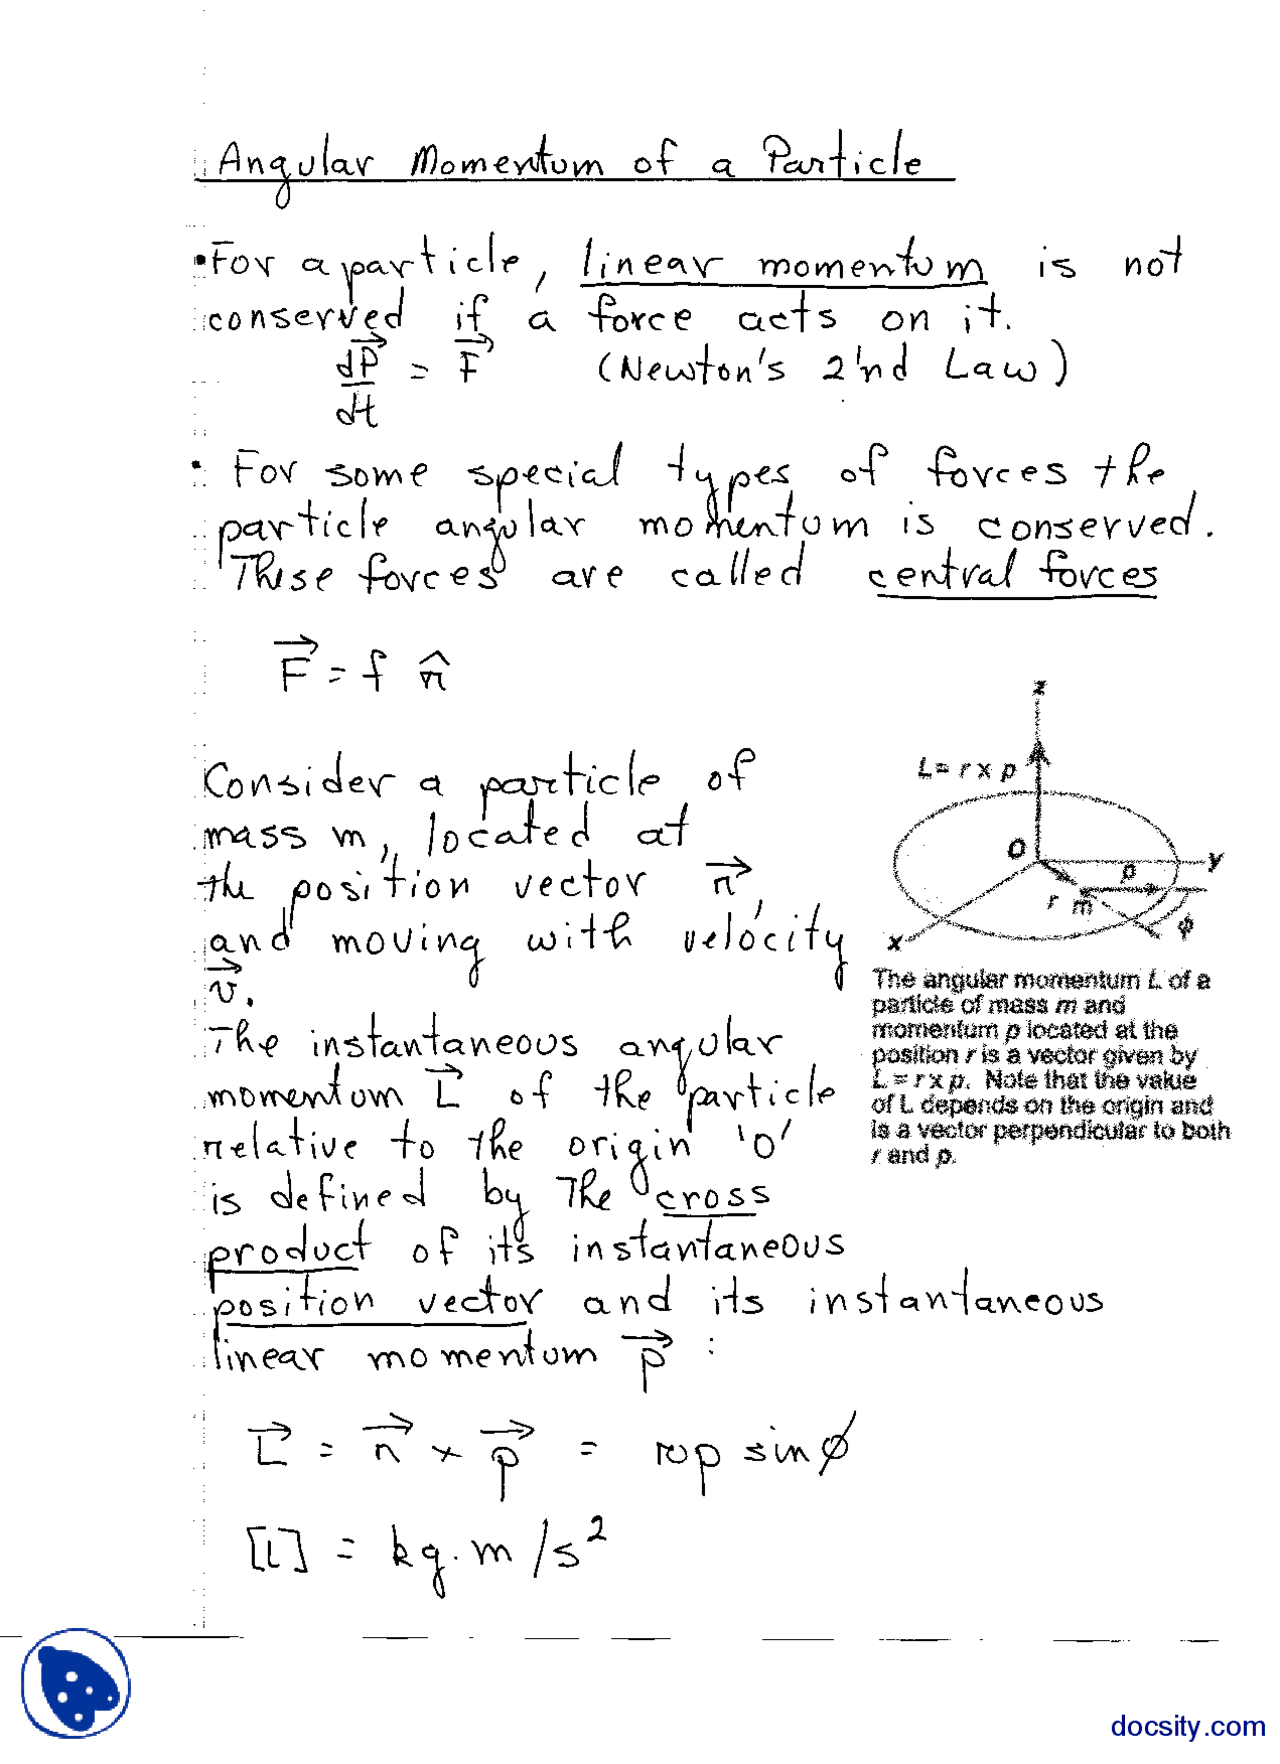 Angular Momentum of a Particle
• For a particle, linear momentum is not
conserved if a force acts on it.
dP⃗/dt = F⃗ (Newton's 2'nd Law)
• For some special types of forces the
particle angular momentum is conserved.
These forces are called central forces
F⃗ = f r̂
Consider a particle of
mass m, located at
the position vector r⃗,
and moving with velocity
v⃗.
The instantaneous angular
momentum L⃗ of the particle
relative to the origin 'O'
is defined by the cross
product of its instantaneous
position vector and its instantaneous
linear momentum p⃗ :
L⃗ = r⃗ × p⃗ = rp sinϕ
[L] = kg.m/s²
z
L = r x p
O
y
p
r
m
ϕ
x
The angular momentum L of a
particle of mass m and
momentum p located at the
position r is a vector given by
L = r x p. Note that the value
of L depends on the origin and
is a vector perpendicular to both
r and p.
docsity.com